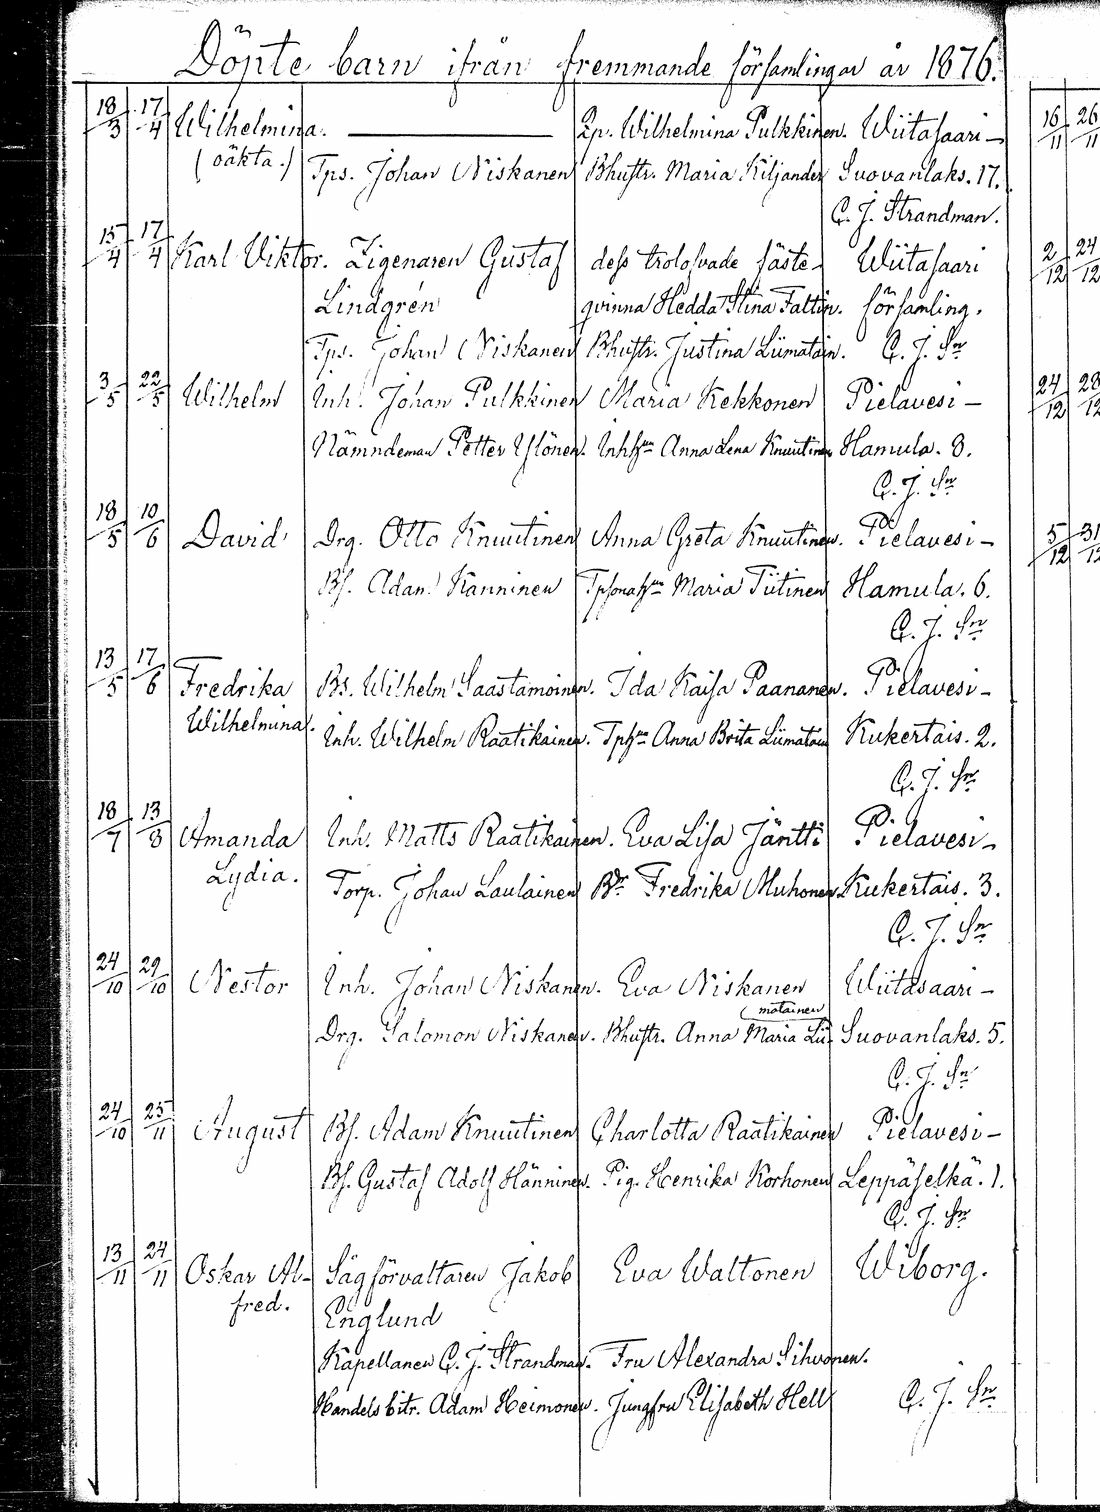 Döpte barn ifrån fremmande församlingar år 1876.
18/3 17/4 Wilhelmina. Wilhelmina Pulkkinen. Wiitasaari –
(oäkta.) Tps. Johan Niskanen Bhustr. Maria Kiljander Suovanlaks. 17.
C. J. Strandman.
15/4 17/4 Karl Viktor. Zigenaren Gustaf dess trolofvade fäste- Wiitasaari
Lindgrén qvinna Hedda Stina Faltin. församling.
Tps. Johan Niskanen Bhustr. Justina Liimatain. C. J. Sn
3/5 22/5 Wilhelm Inh. Johan Pulkkinen Maria Kekkonen Pielavesi –
Nämndeman Petter Ylönen. Inhhun Anna Lena Knuutinen Hamula. 8.
C. J. Sn
18/5 10/6 David Drg. Otto Knuutinen Anna Greta Knuutinen. Pielavesi –
Bs. Adam Kanninen Tpsonahun Maria Tiitinen Hamula. 6.
C. J. Sn
13/5 17/6 Fredrika Bs. Wilhelm Saastamoinen. Ida Kaisa Paananen. Pielavesi –
Wilhelmina. Inh. Wilhelm Raatikainen. Tphun Anna Brita Liimatain Kukertais. 2.
C. J. Sn
18/7 13/8 Amanda Inh. Matts Raatikainen. Eva Lisa Jäntti Pielavesi –
Lydia. Torp. Johan Laulainen Fredrika Muhonen Kukertais. 3.
C. J. Sn
24/10 29/10 Nestor Inh. Johan Niskanen. Eva Niskanen Wiitasaari –
(matainen
Drg. Salomon Niskanen. Bhustr. Anna Maria Lii- Suovanlaks. 5.
C. J. Sn
24/10 25/11 August Bs. Adam Knuutinen Charlotta Raatikainen Pielavesi –
Bs. Gustaf Adolf Hänninen. Pig. Henrika Korhonen Leppäselkä. 1.
C. J. Sn
13/11 24/11 Oskar Al- Sågförvaltaren Jakob Eva Waltonen Wiborg.
fred. Englund
Kapellanen C. J. Strandman. Fru Alexandra Sihvonen.
Handels bitr. Adam Heimonen. Jungfru Elisabeth Hell C. J. Sn
16/11 26/11
2/12 24/12
24/12 28/12
5/12 31/12